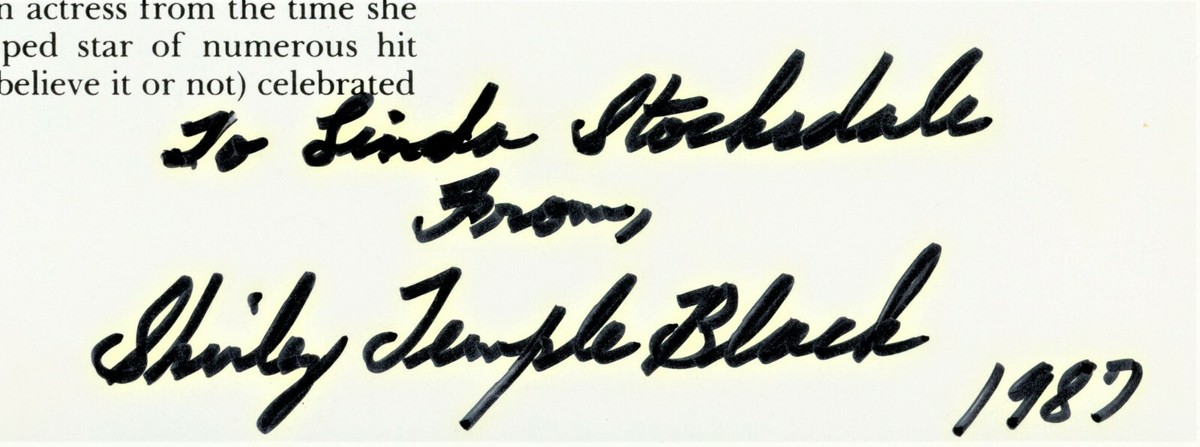 n actress from the time she
ped star of numerous hit
believe it or not) celebrated
To Linda Stocksdale
From,
Shirley Temple Black
1987